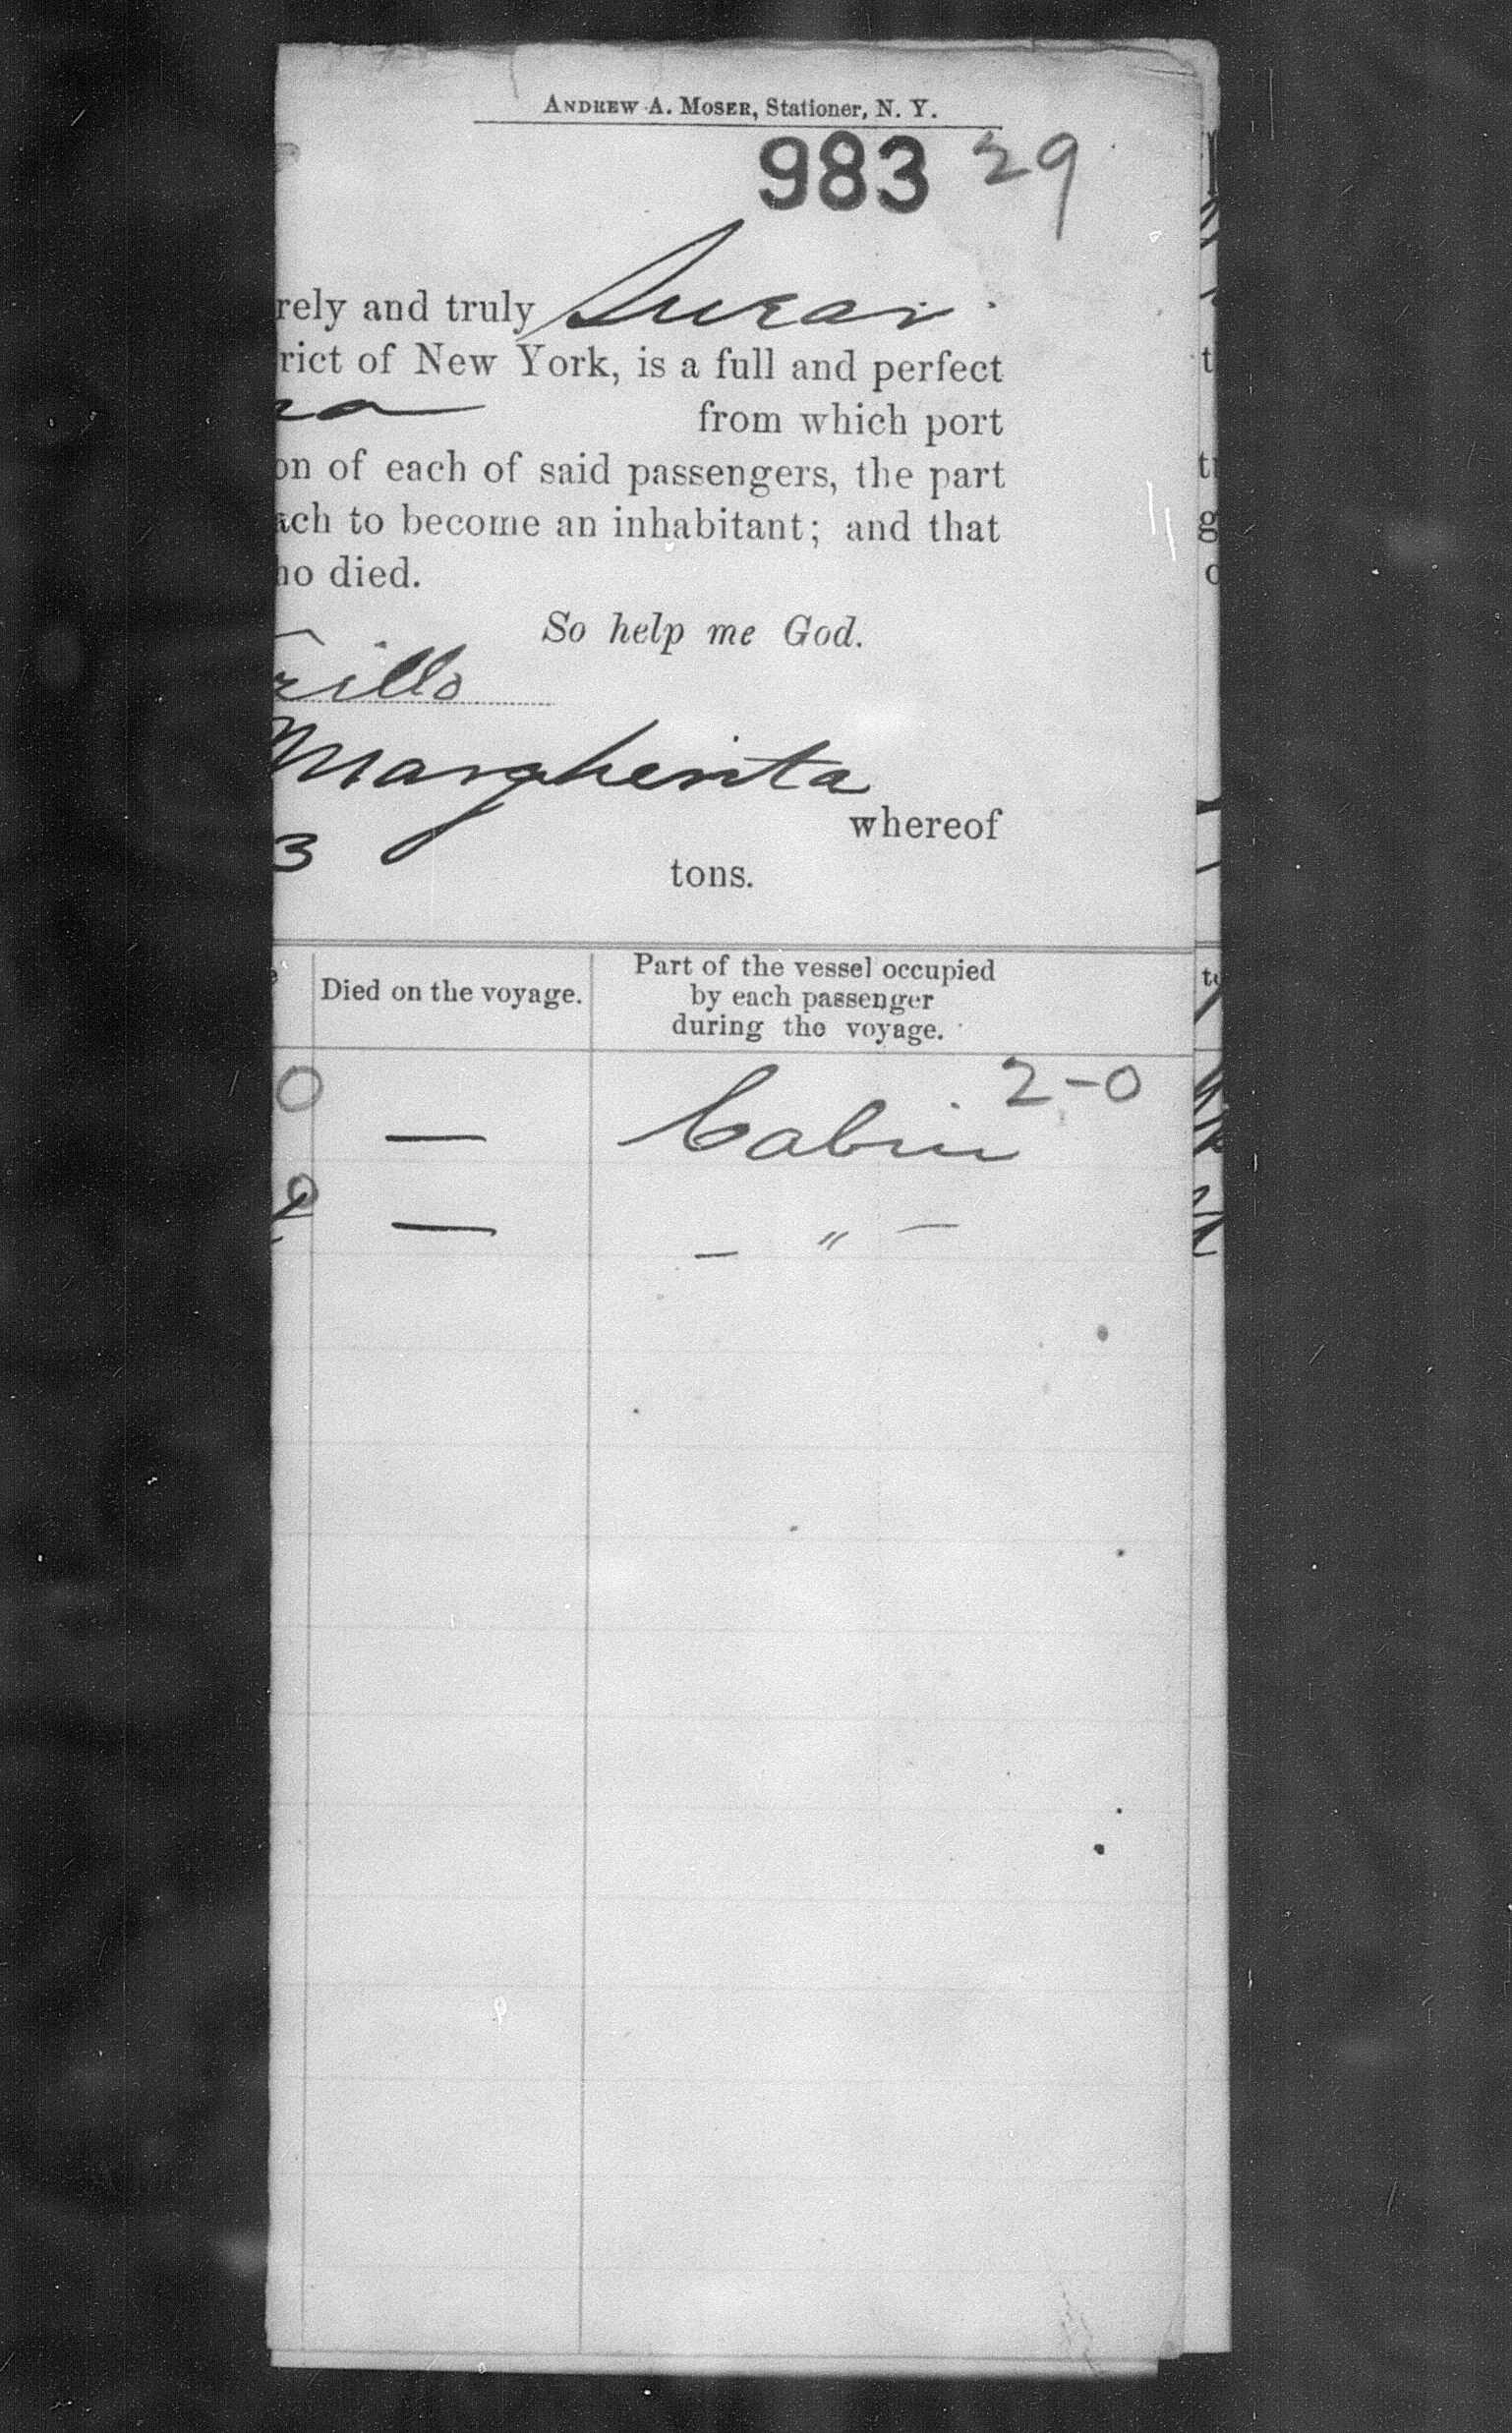 ANDREW A. MOSER, Stationer, N. Y.
983 29
rely and truly Swear
rict of New York, is a full and perfect
from which port
on of each of said passengers, the part
ach to become an inhabitant; and that
ho died.
So help me God.
rillo
Margherita
whereof
3
tons.
Died on the voyage.
Part of the vessel occupied
by each passenger
during the voyage.
0 2-0
— Cabin
0 — — " —